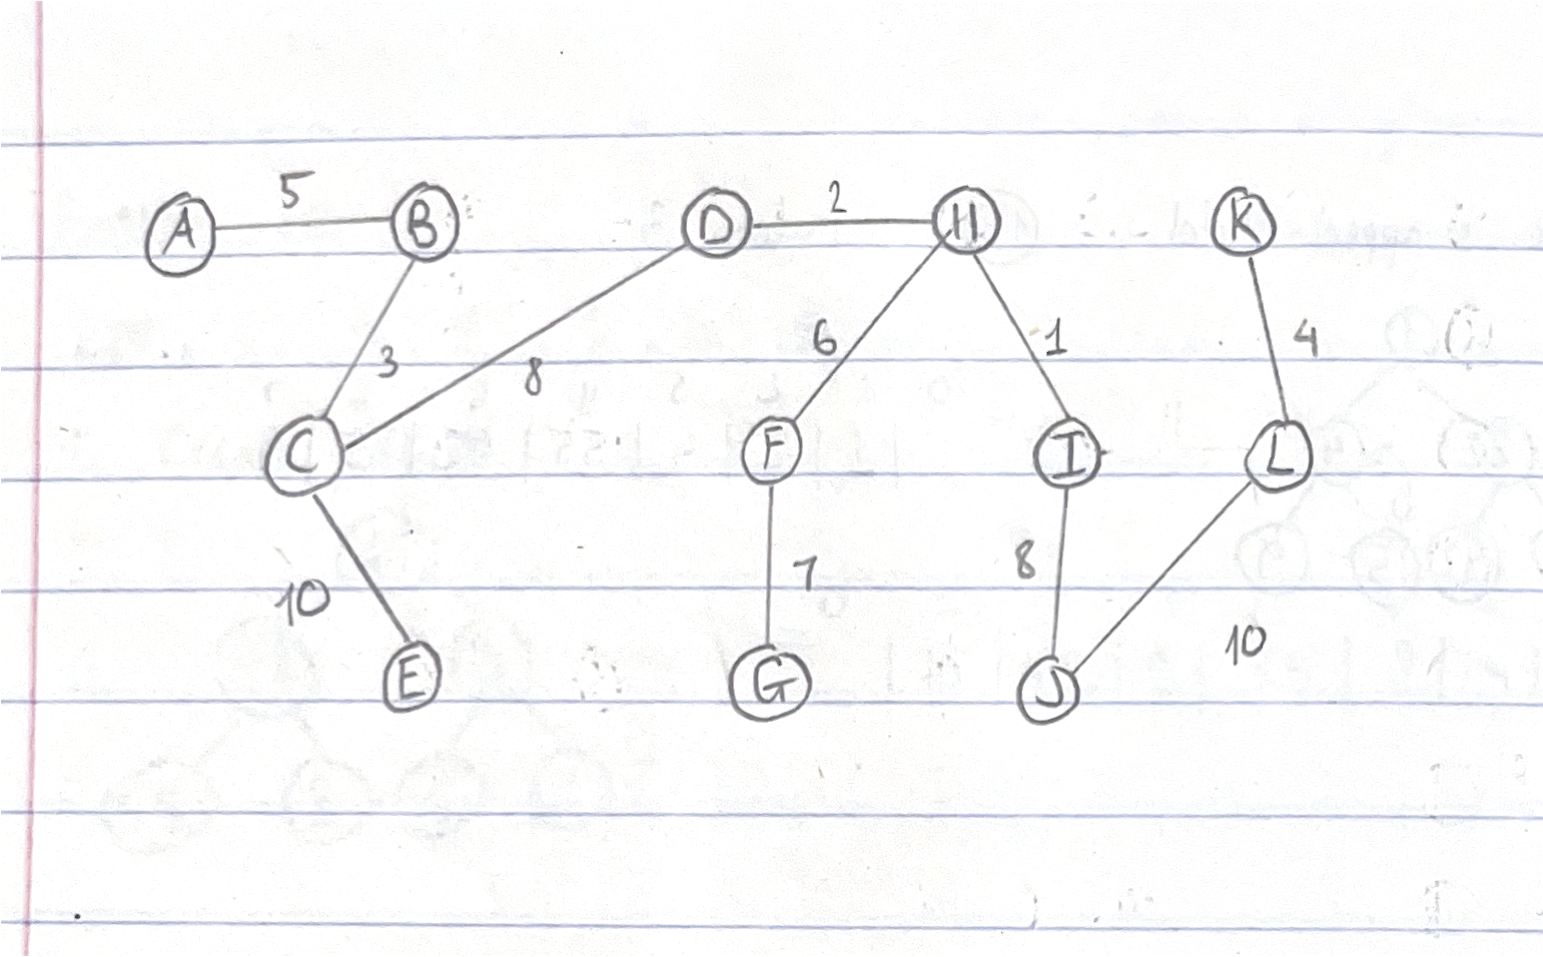 5 2
A B D H K
3 8 6 1 4
C F I L
10 7 8 10
E G J